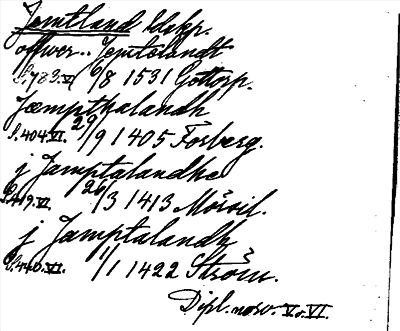 Jemtland ldskp.
offwer.. Jemtelandt
S. 783. V 6/8 1531 Gottorp.
Jæmpthalandh
S. 404. VI. 29/9 1405 Forberg.
j Jamptalandhe
S. 419. VI 26/3 1413 Mörsil.
j Jamptalandh
S. 440. VI. 1/1 1422 Ström.
Dipl. norv. V o. VI.